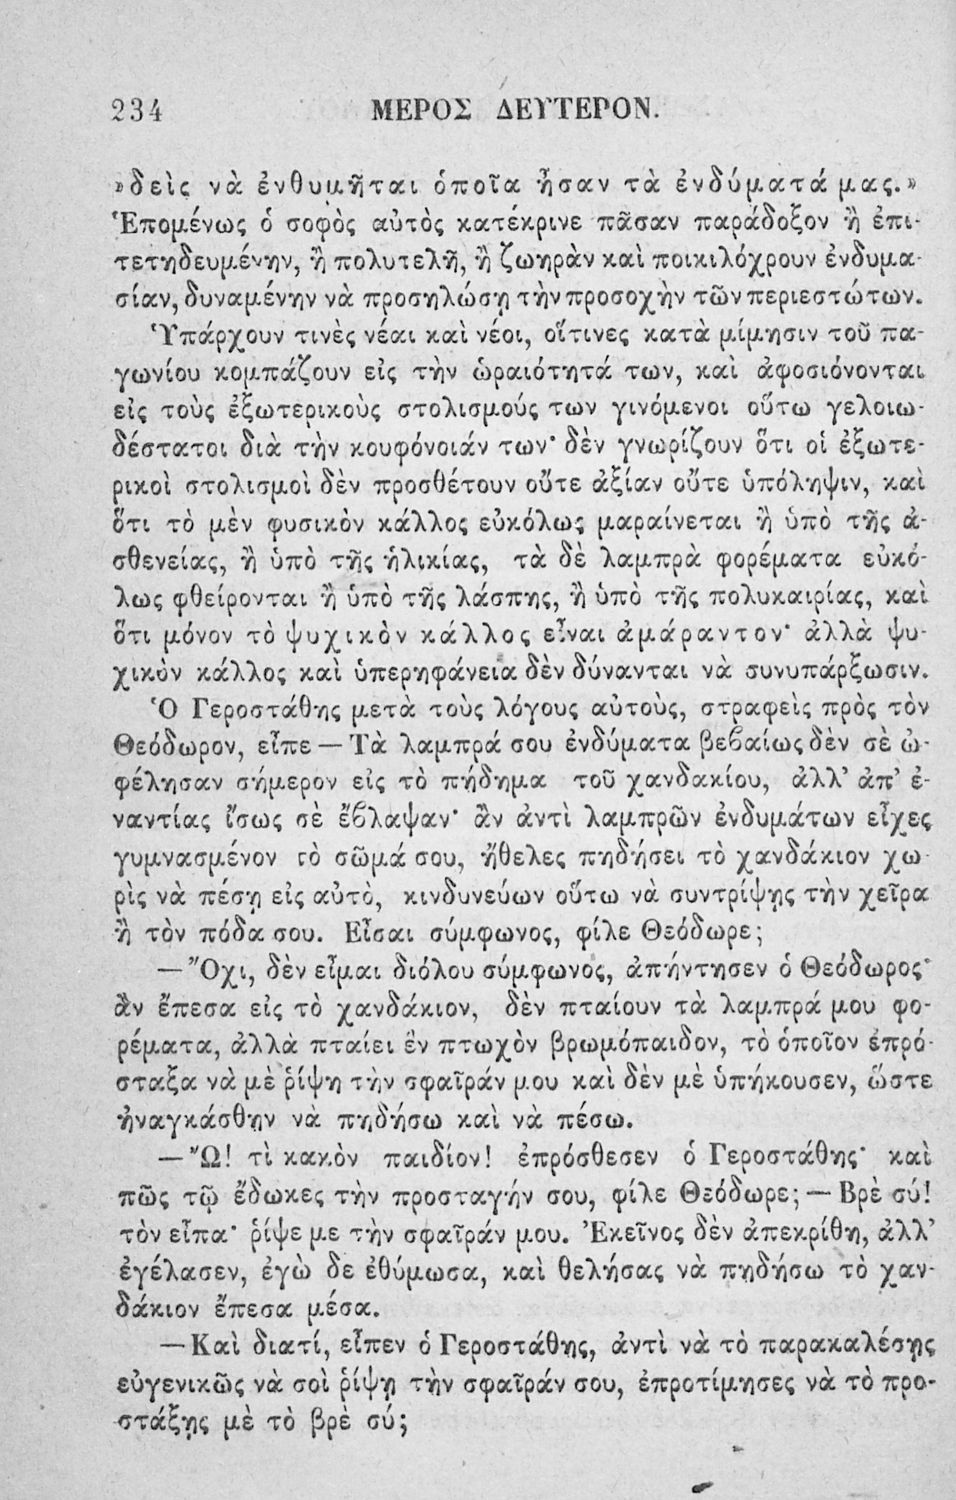 234 ΜΕΡΟΣ ΔΕΥΤΕΡΟΝ.
»δεὶς νὰ ἐνθυμῆται ὁποῖα ἦσαν τὰ ἐνδύματά μας.»
Ἑπομένως ὁ σοφὸς αὐτὸς κατέκρινε πᾶσαν παράδοξον ἢ ἐπι-
τετηδευμένην, ἢ πολυτελῆ, ἢ ζωηρὰν καὶ ποικιλόχρουν ἐνδυμα-
σίαν, δυναμένην νὰ προσηλώσῃ τὴν προσοχὴν τῶν περιεστώτων.
Ὑπάρχουν τινὲς νέαι καὶ νέοι, οἵτινες κατὰ μίμησιν τοῦ πα-
γωνίου κομπάζουν εἰς τὴν ὡραιότητά των, καὶ ἀφοσιόνονται
εἰς τοὺς ἐξωτερικοὺς στολισμούς των γινόμενοι οὕτω γελοιω-
δέστατοι διὰ τὴν κουφόνοιάν των· δὲν γνωρίζουν ὅτι οἱ ἐξωτε-
ρικοὶ στολισμοὶ δὲν προσθέτουν οὔτε ἀξίαν οὔτε ὑπόληψιν, καὶ
ὅτι τὸ μὲν φυσικὸν κάλλος εὐκόλως μαραίνεται ἢ ὑπὸ τῆς ἀ-
σθενείας, ἢ ὑπὸ τῆς ἡλικίας, τὰ δὲ λαμπρὰ φορέματα εὐκό-
λως φθείρονται ἢ ὑπὸ τῆς λάσπης, ἢ ὑπὸ τῆς πολυκαιρίας, καὶ
ὅτι μόνον τὸ ψυχικὸν κάλλος εἶναι ἀμάραντον· ἀλλὰ ψυ-
χικὸν κάλλος καὶ ὑπερηφάνεια δὲν δύνανται νὰ συνυπάρξωσιν.
Ὁ Γεροστάθης μετὰ τοὺς λόγους αὐτοὺς, στραφεὶς πρὸς τὸν
Θεόδωρον, εἶπε — Τὰ λαμπρά σου ἐνδύματα βεβαίως δὲν σὲ ὠ-
φέλησαν σήμερον εἰς τὸ πήδημα τοῦ χανδακίου, ἀλλ' ἀπ' ἐ-
ναντίας ἴσως σὲ ἔβλαψαν· ἂν ἀντὶ λαμπρῶν ἐνδυμάτων εἶχες
γυμνασμένον τὸ σῶμά σου, ἤθελες πηδήσει τὸ χανδάκιον χω-
ρὶς νὰ πέσῃ εἰς αὐτὸ, κινδυνεύων οὕτω νὰ συντρίψῃς τὴν χεῖρα
ἢ τὸν πόδα σου. Εἶσαι σύμφωνος, φίλε Θεόδωρε;
— Ὄχι, δὲν εἶμαι διόλου σύμφωνος, ἀπήντησεν ὁ Θεόδωρος·
ἂν ἔπεσα εἰς τὸ χανδάκιον, δὲν πταίουν τὰ λαμπρά μου φο-
ρέματα, ἀλλὰ πταίει ἓν πτωχὸν βρωμόπαιδον, τὸ ὁποῖον ἐπρό-
σταξα νὰ μὲ ῥίψῃ τὴν σφαῖράν μου καὶ δὲν μὲ ὑπήκουσεν, ὥστε
ἠναγκάσθην νὰ πηδήσω καὶ νὰ πέσω.
— Ὢ! τὶ κακὸν παιδίον! ἐπρόσθεσεν ὁ Γεροστάθης· καὶ
πῶς τῷ ἔδωκες τὴν προσταγήν σου, φίλε Θεόδωρε; — Βρὲ σύ!
τὸν εἶπα· ῥίψε με τὴν σφαῖράν μου. Ἐκεῖνος δὲν ἀπεκρίθη, ἀλλ'
ἐγέλασεν, ἐγὼ δε ἐθύμωσα, καὶ θελήσας νὰ πηδήσω τὸ χαν-
δάκιον ἔπεσα μέσα.
— Καὶ διατί, εἶπεν ὁ Γεροστάθης, ἀντὶ νὰ τὸ παρακαλέσῃς
εὐγενικῶς νὰ σοὶ ῥίψῃ τὴν σφαῖράν σου, ἐπροτίμησες νὰ τὸ προ-
στάξῃς μὲ τὸ βρὲ σύ;